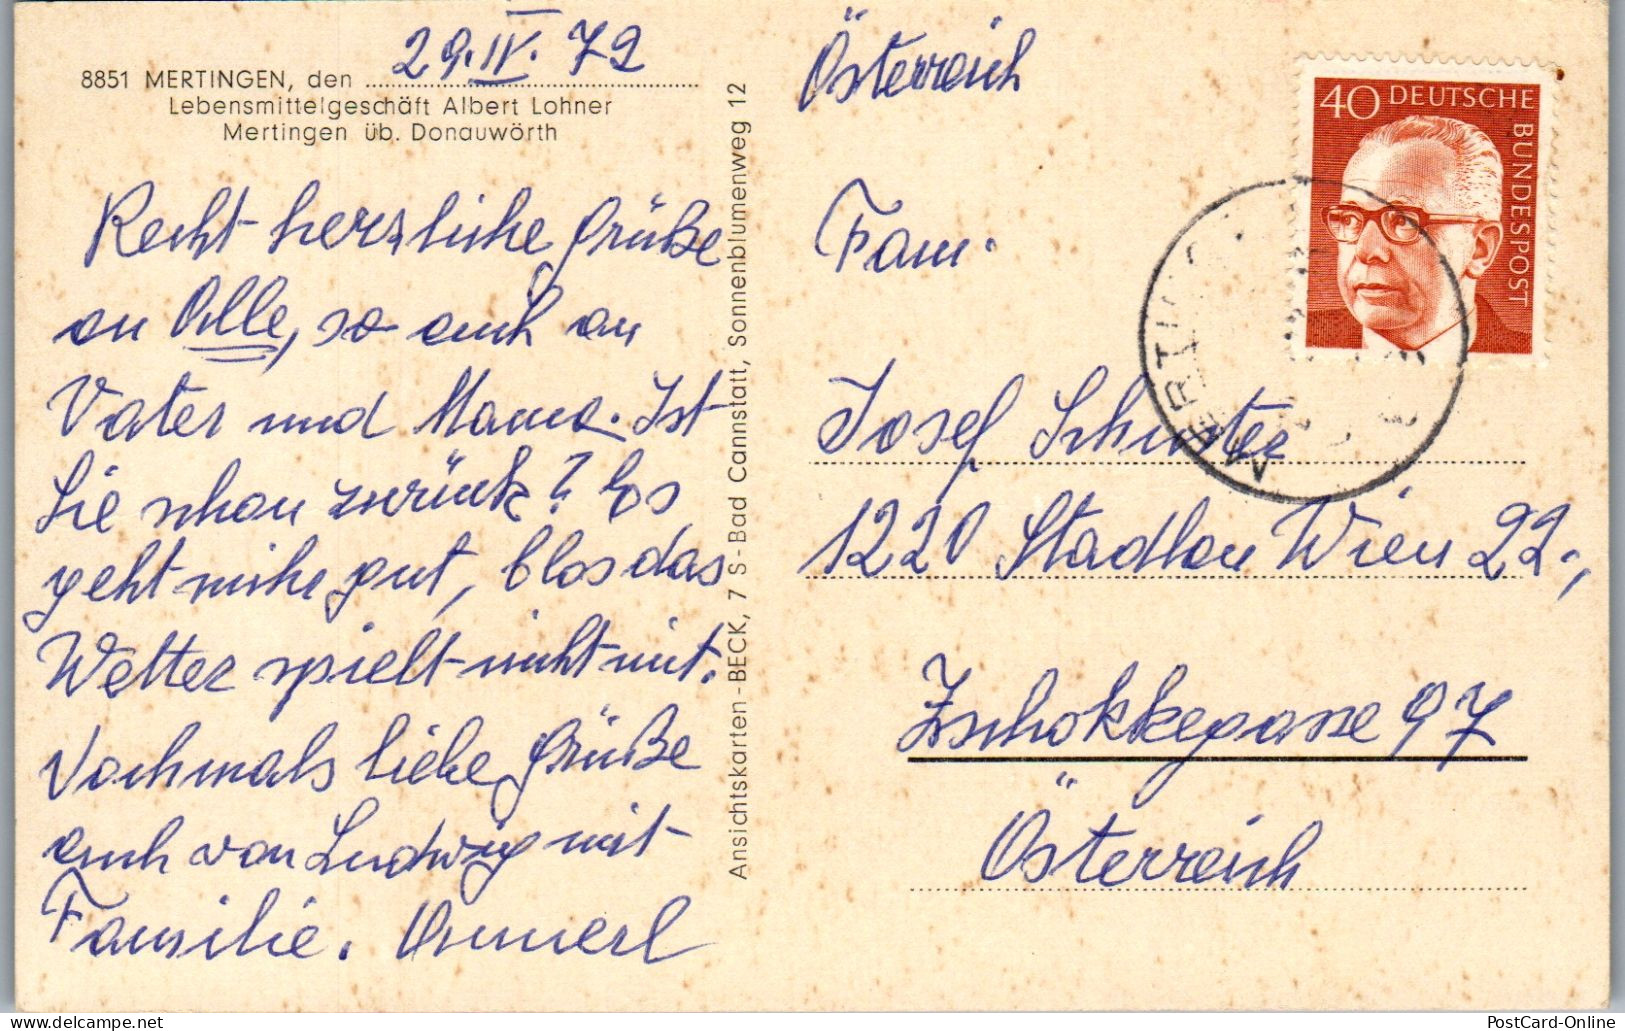 8851 MERTINGEN, den 29.IV.72
Lebensmittelgeschäft Albert Lohner
Mertingen üb. Donauwörth
Recht herzliche Grüße
an Alle, so auch an
Vater und Mama. Ist
Sie schon zurück? Es
geht mihr gut, blos das
Wetter spielt nicht mit.
Nochmals liebe Grüße
auch von Ludwig mit
Familie. Annerl
Ansichtskarten-BECK, 7 S-Bad Cannstatt, Sonnenblumenweg 12
Österreich
40 DEUTSCHE
BUNDESPOST
MERTING
Fam.
Josef Schuster
1220 Stadlau Wien 22.,
Zschokkegasse 97
Österreich
PostCard-Online